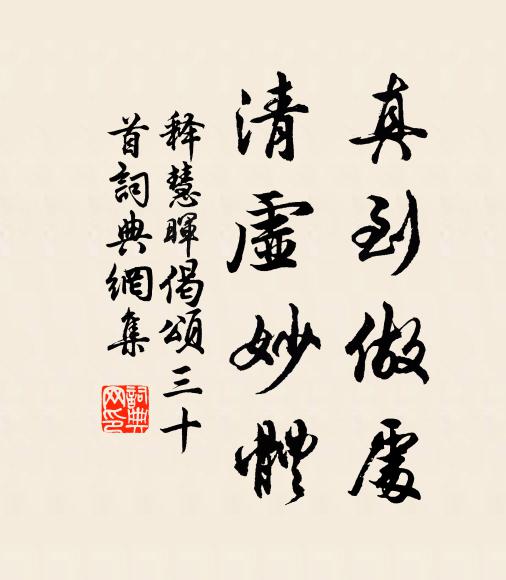 真到做處
清虛妙體
释慧暉偈頌三十
首詞典網集
詞典
网印